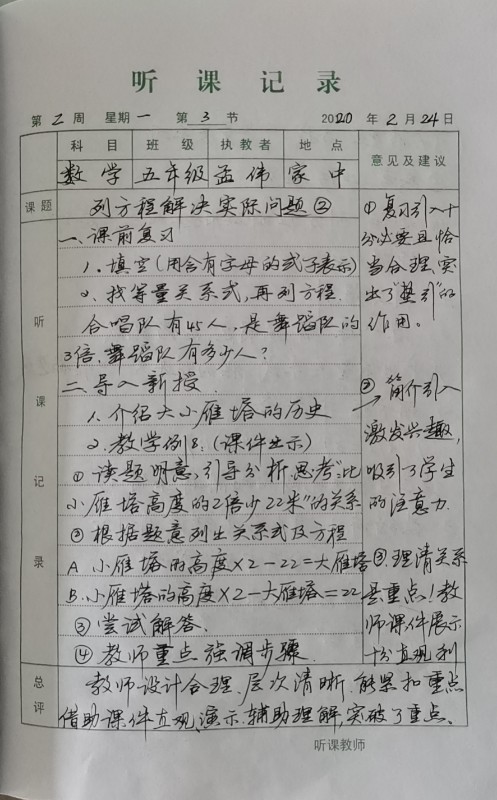 听课记录
第 2 周 星期 一 第 3 节 2020 年 2 月 24 日
科目 班级 执教者 地点 意见及建议
数学 五年级 孟伟 家中
课题 列方程解决实际问题②
听课记录
一、课前复习
1. 填空(用含有字母的式子表示)
2. 找等量关系式,再列方程.
合唱队有45人,是舞蹈队的
3倍,舞蹈队有多少人?
二、导入新授.
1. 介绍大小雁塔的历史
2. 教学例8:(课件出示)
① 读题明意,引导分析思考"比
小雁塔高度的2倍少22米"的关系
② 根据题意列出关系式及方程
A 小雁塔的高度×2-22=大雁塔
B. 小雁塔的高度×2-大雁塔=22
③ 尝试解答、
④ 教师重点强调步骤.
① 复习引入十
分必要且恰
当合理,突
出了"垫引"的
作用。
② 简介引入
激发兴趣,
吸引了学生
的注意力.
③.理清关系
是重点!教
师课件展示
十分直观利
总评 教师设计合理、层次清晰.能紧扣重点
借助课件直观演示.辅助理解,突破了重点、
听课教师